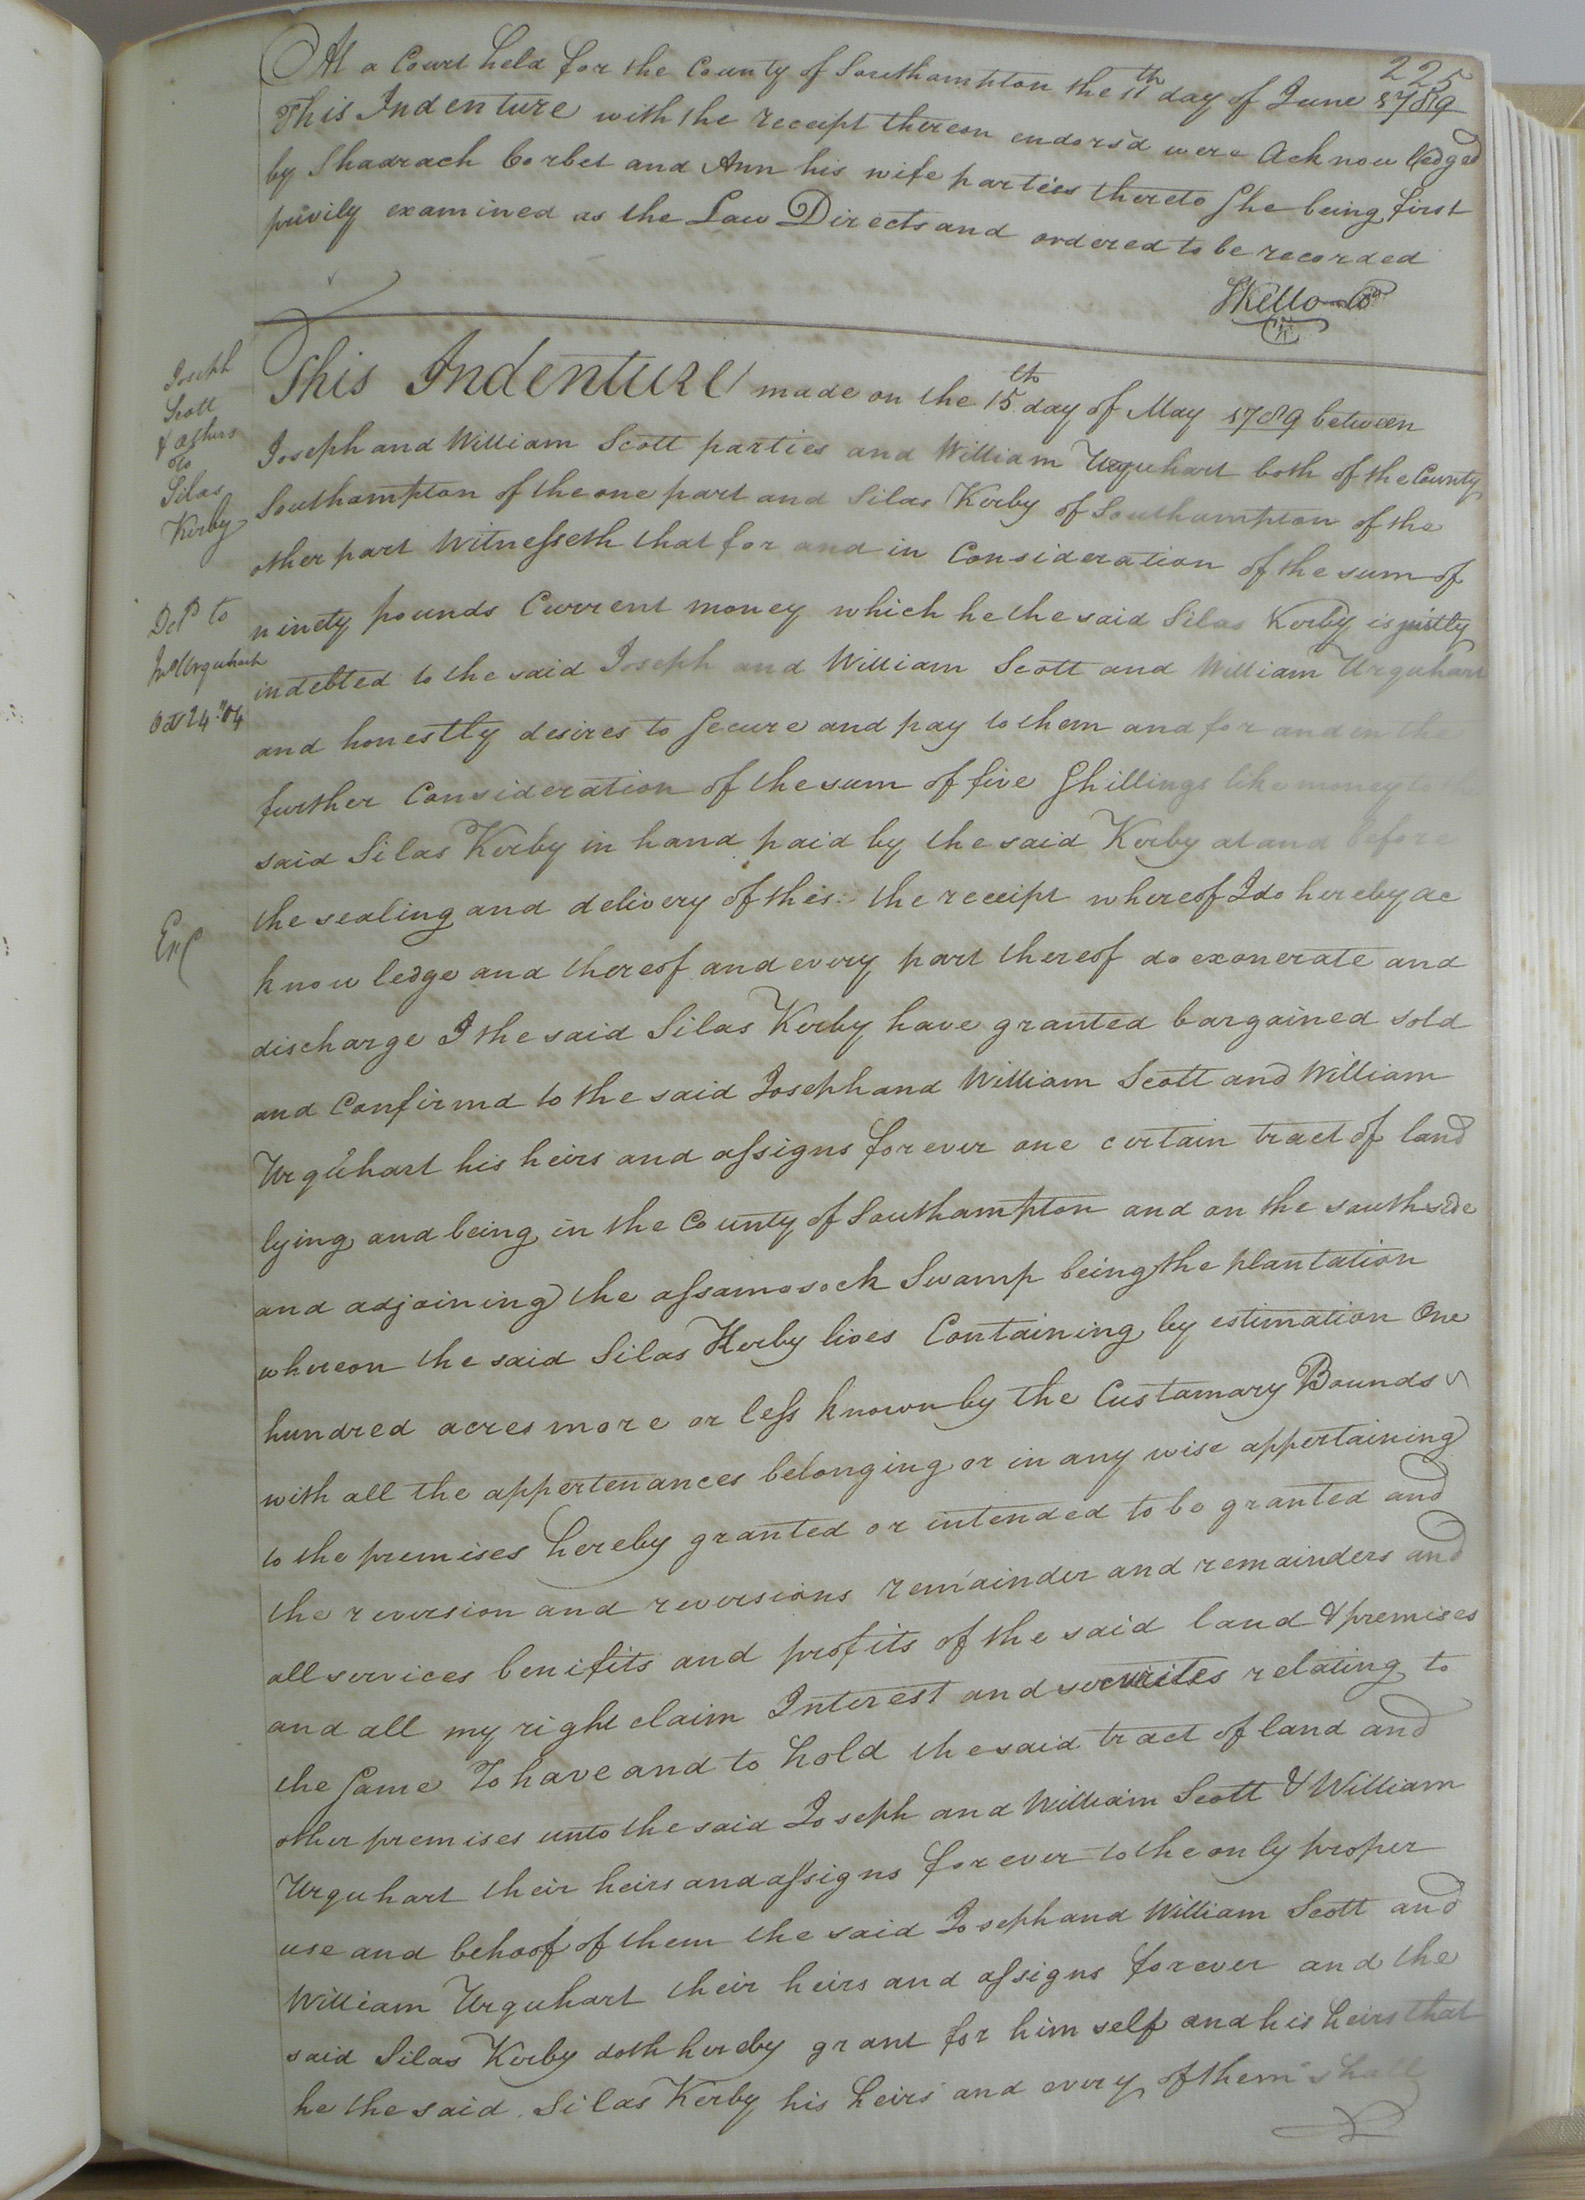 225
At a Court held for the County of Southampton the 11th day of June 1789
This Indenture with the receipt thereon endorsd were Acknowledged
by Shadrach Corbet and Ann his wife parties thereto She being first
privily examined as the Law Directs and ordered to be recorded
SKello
Joseph
Scott
& others
To
Silas
Kerby
This Indenture made on the 15th day of May 1789 between
Joseph and William Scott parties and William Urquhart both of the County
Southampton of the one part and Silas Kerby of Southampton of the
other part Witnesseth that for and in Consideration of the sum of
Deld to
Urquhart
ninety pounds Current money which he the said Silas Kerby is justly
indebted to the said Joseph and William Scott and William Urquhart
and honestly desires to Secure and pay to them and for and in the
further Consideration of the sum of five Shillings like money to the
said Silas Kerby in hand paid by the said Kerby at and before
the sealing and delivery of this the receipt whereof I do hereby ac
knowledge and thereof and every part thereof do exonerate and
discharge I the said Silas Kerby have granted bargained sold
and Confirmd to the said Joseph and William Scott and William
Urquhart his heirs and assigns forever one certain tract of land
lying and being in the County of Southampton and on the south side
and adjoining the assamosock Swamp being the plantation
whereon the said Silas Kerby lives Containing by estimation One
hundred acres more or less known by the Customary Bounds
with all the appertenances belonging or in any wise appertaining
to the premises hereby granted or intended to be granted and
the reversion and reversions remainder and remainders and
all services benifits and profits of the said land & premises
and all my right claim Interest and securites relating to
the Same To have and to hold the said tract of land and
other premises unto the said Joseph and William Scott & William
Urquhart their heirs and assigns forever to the only proper
use and behoof of them the said Joseph and William Scott and
William Urquhart their heirs and assigns forever and the
said Silas Kerby doth hereby grant for him self and his heirs that
he the said Silas Kerby his heirs and every of them shall